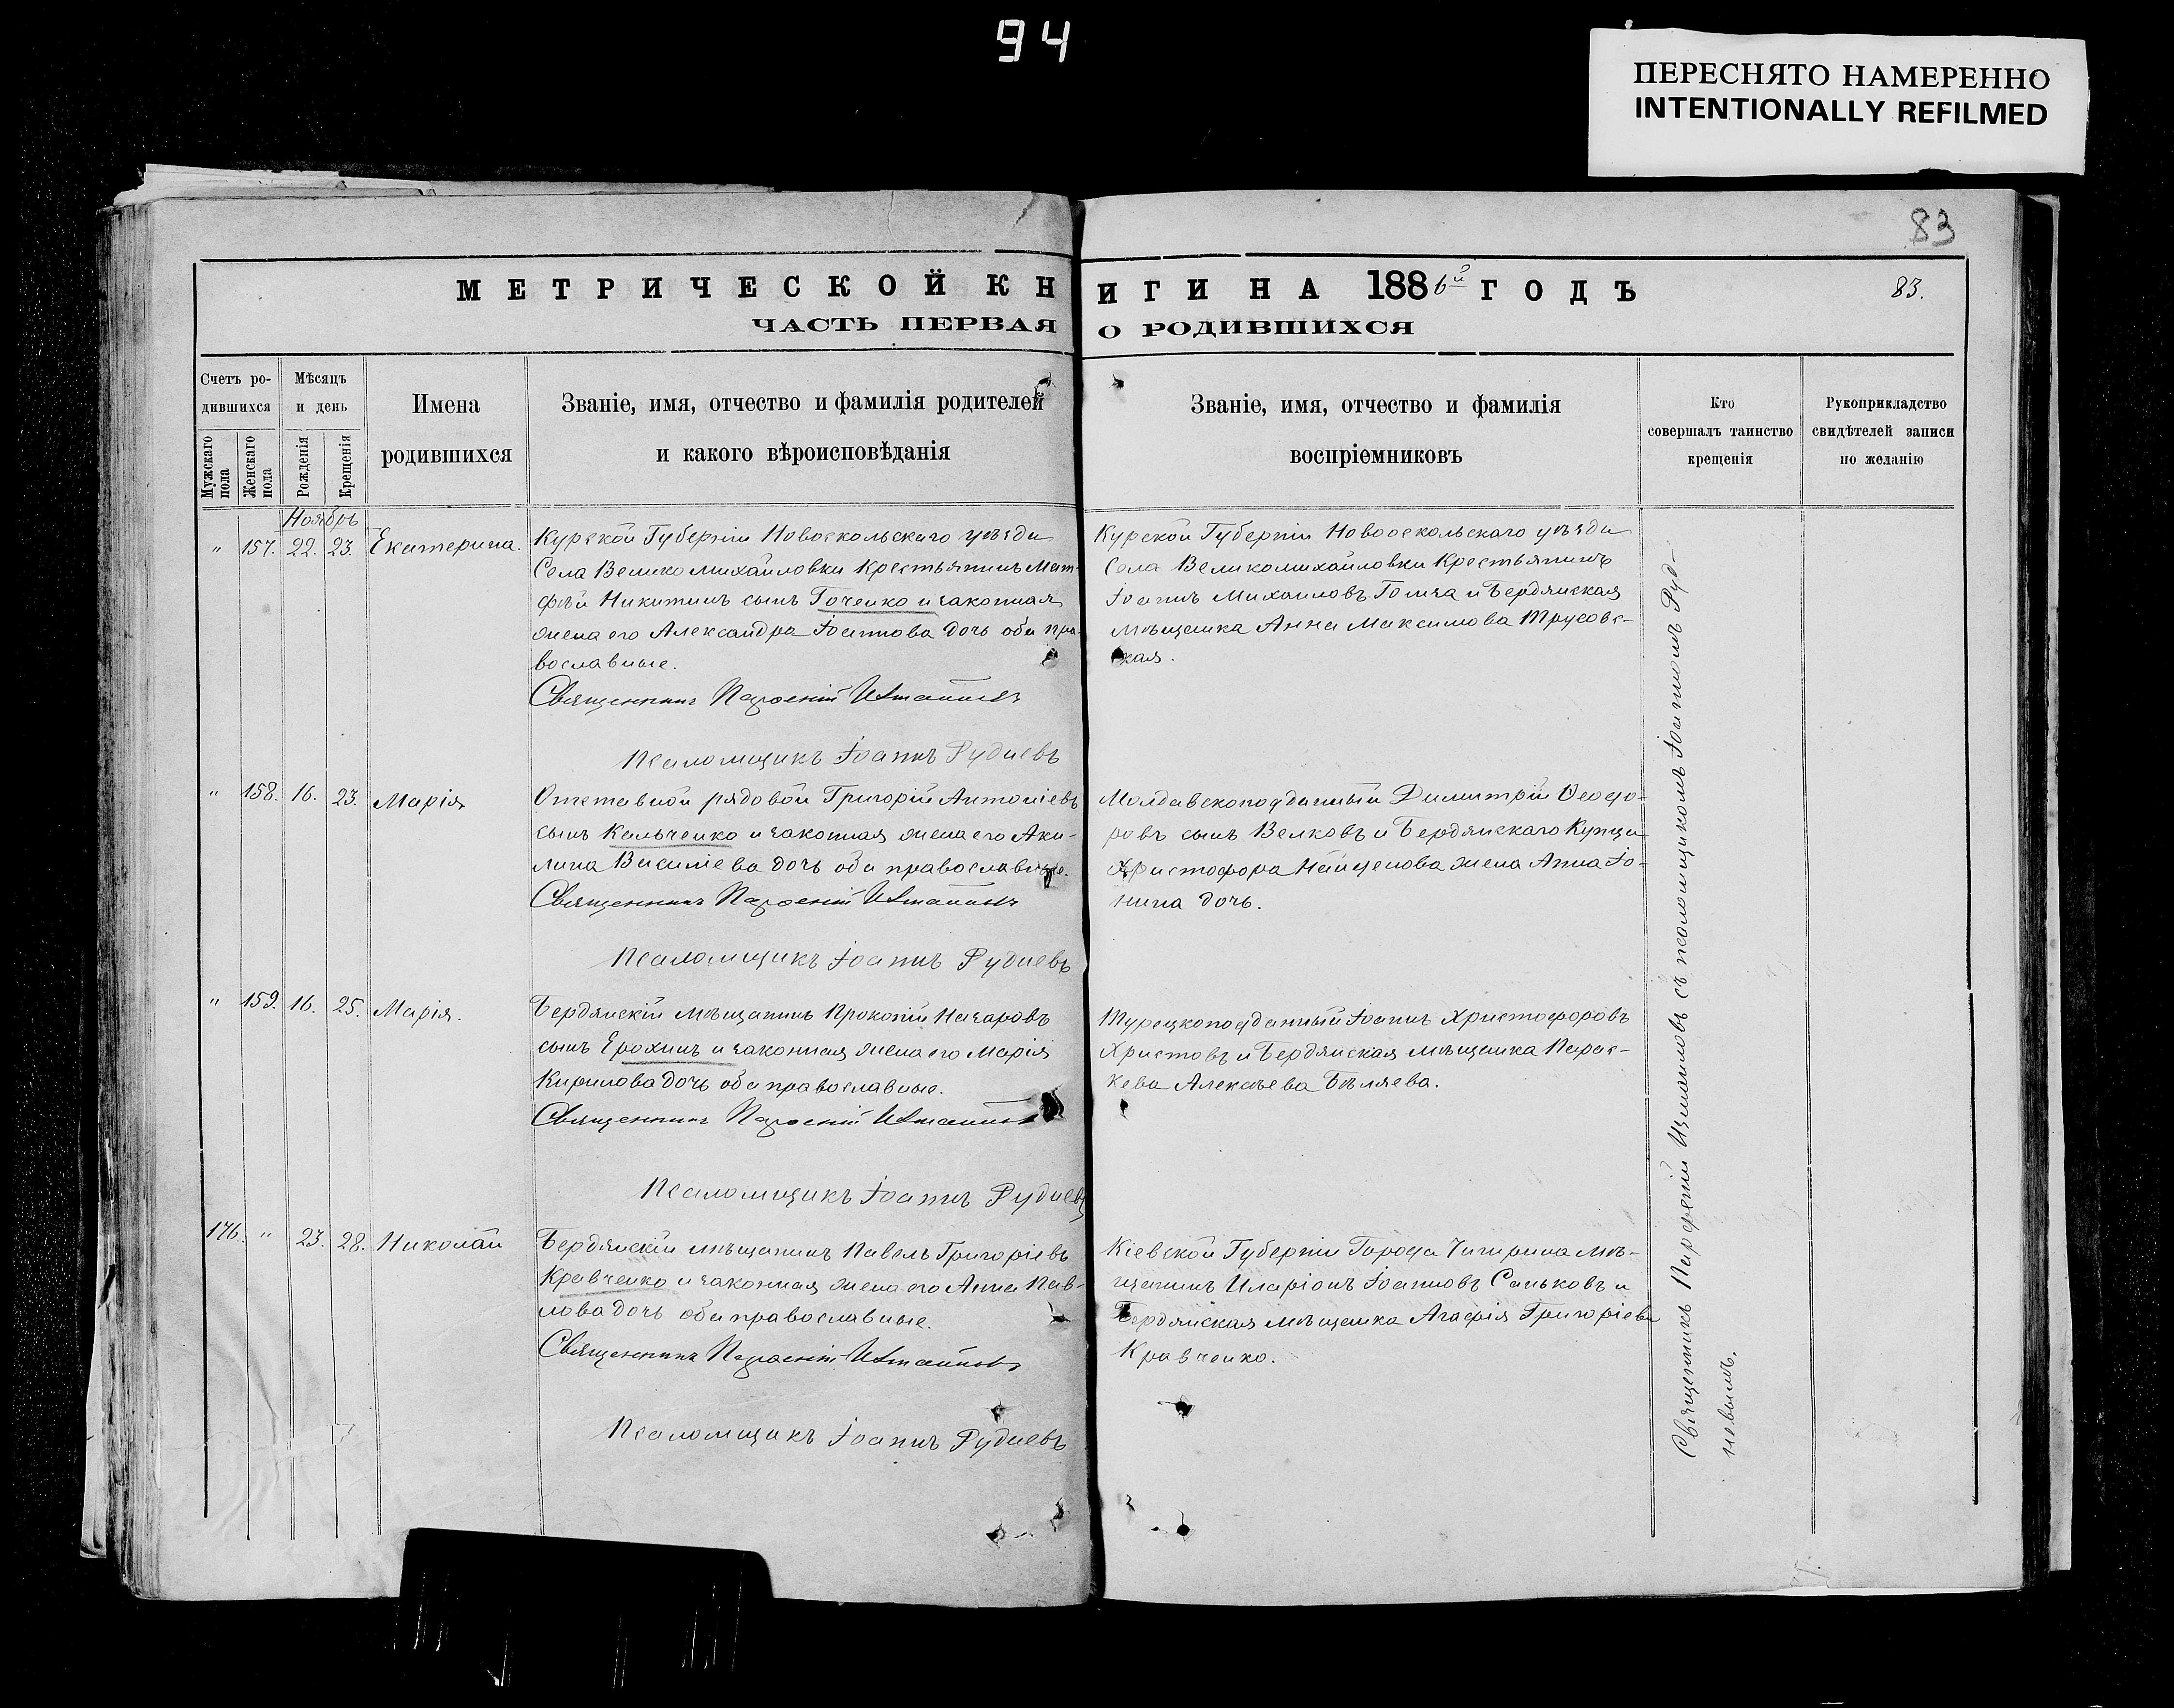 94
ПЕРЕСНЯТО НАМЕРЕННО
INTENTIONALLY REFILMED
83
МЕТРИЧЕСКОЙ КНИГИ НА 1886й ГОДЪ
83.
ЧАСТЬ ПЕРВАЯ О РОДИВШИХСЯ
Счетъ ро-
дившихся
Мужскаго пола
Женскаго пола
Мѣсяцъ
и день
Рожденія
Крещенія
Имена
родившихся
Званіе, имя, отчество и фамилія родителей
и какого вѣроисповѣданія
Званіе, имя, отчество и фамилія
воспріемниковъ
Кто
совершалъ таинство
крещенія
Рукоприкладство
свидѣтелей записи
по желанію
Ноябрь
" 157. 22. 23. Екатерина.
Курской Губерніи Новооскольскаго уѣзда
Села Великомихайловки Крестьянинъ Мат-
фѣй Никитинъ сынъ Гоченко и законная
жена его Александра Іоаннова дочь оба пра-
вославные.
Священникъ Парѳеній Измаиловъ
Псаломщикъ Іоаннъ Рудневъ
Курской Губерніи Новооскольскаго уѣзда
Села Великомихайловки Крестьянинъ
Іоаннъ Михаиловъ и Бердянская
мѣщанка Анна Максимова Трусовс-
кая.
" 158. 16. 23. Марія
Отставной рядовой Григорій Антоніевъ
сынъ Кальченко и законная жена его Аки-
лина Василіева дочь оба православные.
Священникъ Парѳеній Измаиловъ
Псаломщикъ Іоаннъ Рудневъ
Молдавскоподданный Димитрій Ѳеодо-
ровъ сынъ Велковъ и Бердянскаго Купца
Христофора Найденова жена Анна Іо-
нина дочь.
" 159. 16. 25. Марія.
Бердянскій мѣщанинъ Прокопій Назаровъ
сынъ Ерохинъ и законная жена его Марія
Кирилова дочь оба православные.
Священникъ Парѳеній Измаиловъ
Псаломщикъ Іоаннъ Рудневъ
Турецкоподданный Іоаннъ Христофоровъ
Христовъ и Бердянская мѣщанка Парас-
кева Алексѣева Бѣляева.
176. " 23. 28. Николай
Бердянскій мѣщанинъ Павелъ Григоріевъ
Кравченко и законная жена его Анна Пав-
лова дочь оба православные.
Священникъ Парѳеній Измаиловъ
Псаломщикъ Іоаннъ Рудневъ
Кіевской Губерніи Города Чигирина мѣ-
щанинъ Иларіонъ Іоанновъ Саньковъ и
Бердянская мѣщанка Агафія Григоріева
Кравченко.
Священникъ Парфеній Измаиловъ съ псаломщикомъ Іоанномъ Руд-
невымъ.